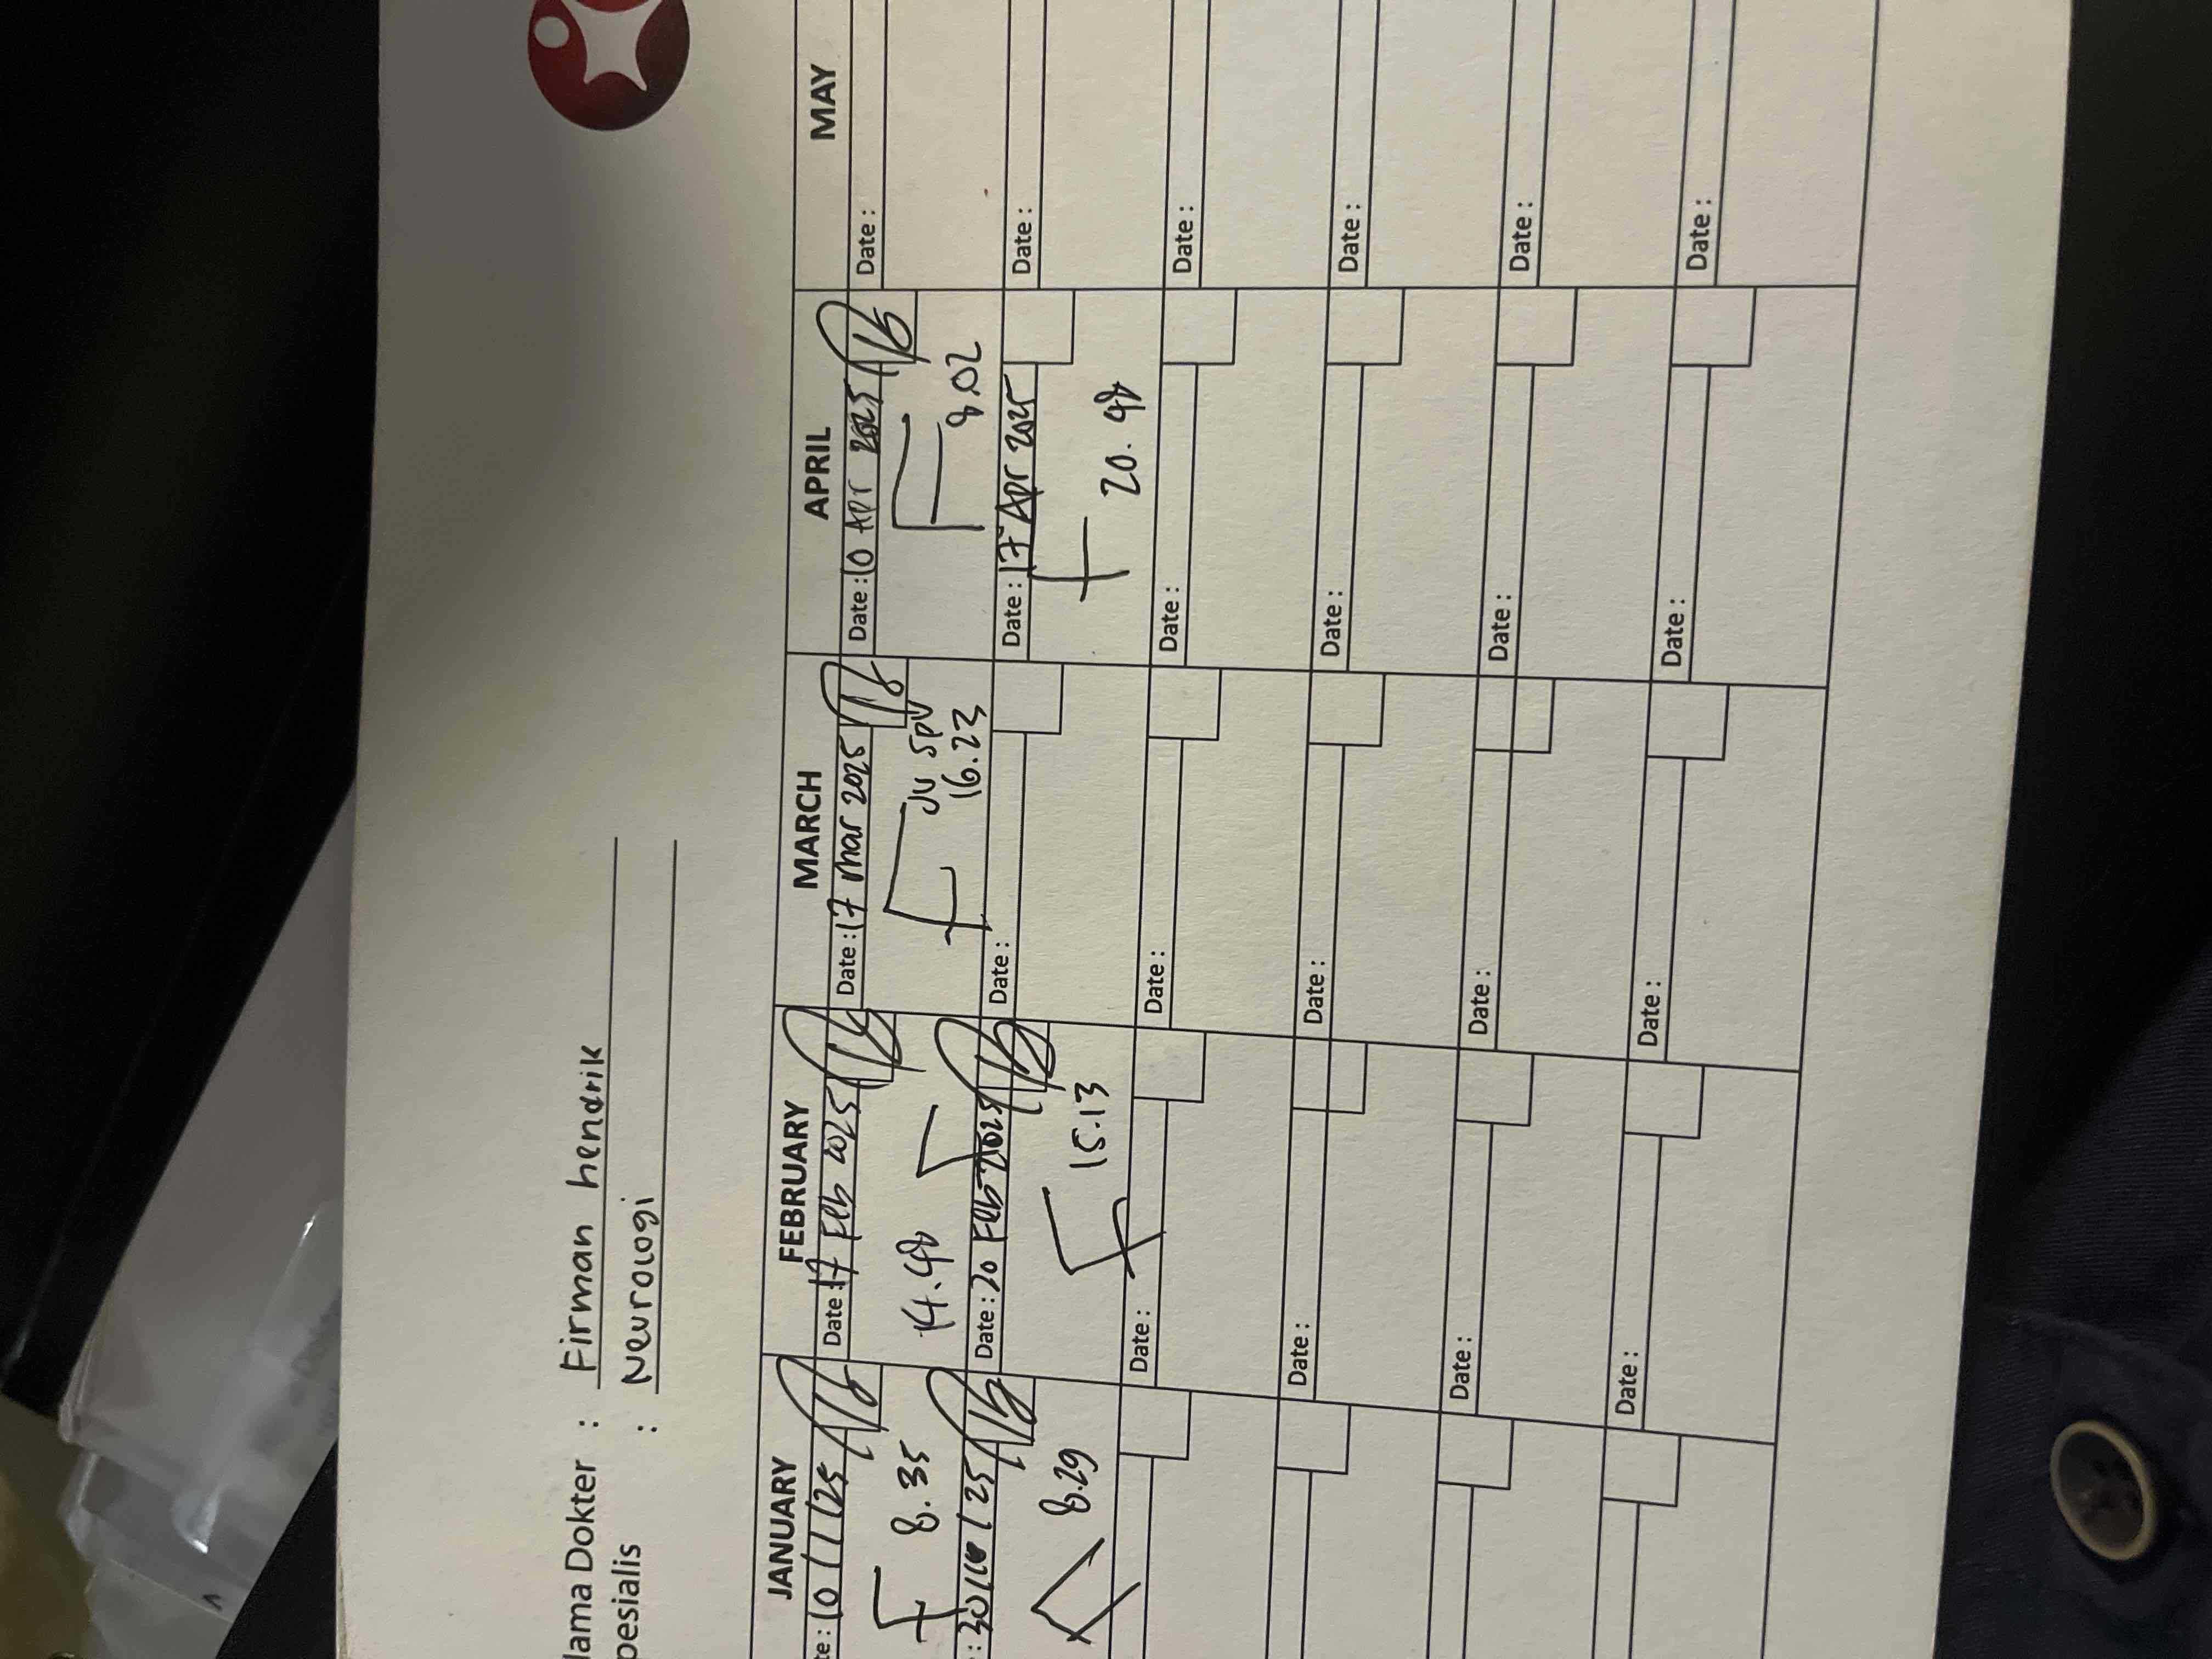 lama Dokter : Firman hendrik
pesialis : Neurologi
JANUARY FEBRUARY MARCH APRIL MAY
te: 10/1/25 Date: 17 Feb 2025 Date: 17 Mar 2025 Date: 10 Apr 2025 Date:
8.35 14.48 JV SPV 8.02
16.23
: 30/ /25 Date: 20 Feb 2025 Date: Date: 17 Apr 2025 Date:
8.29 15.13 20.48
Date: Date: Date: Date:
Date: Date: Date: Date:
Date: Date: Date: Date:
Date: Date: Date: Date: